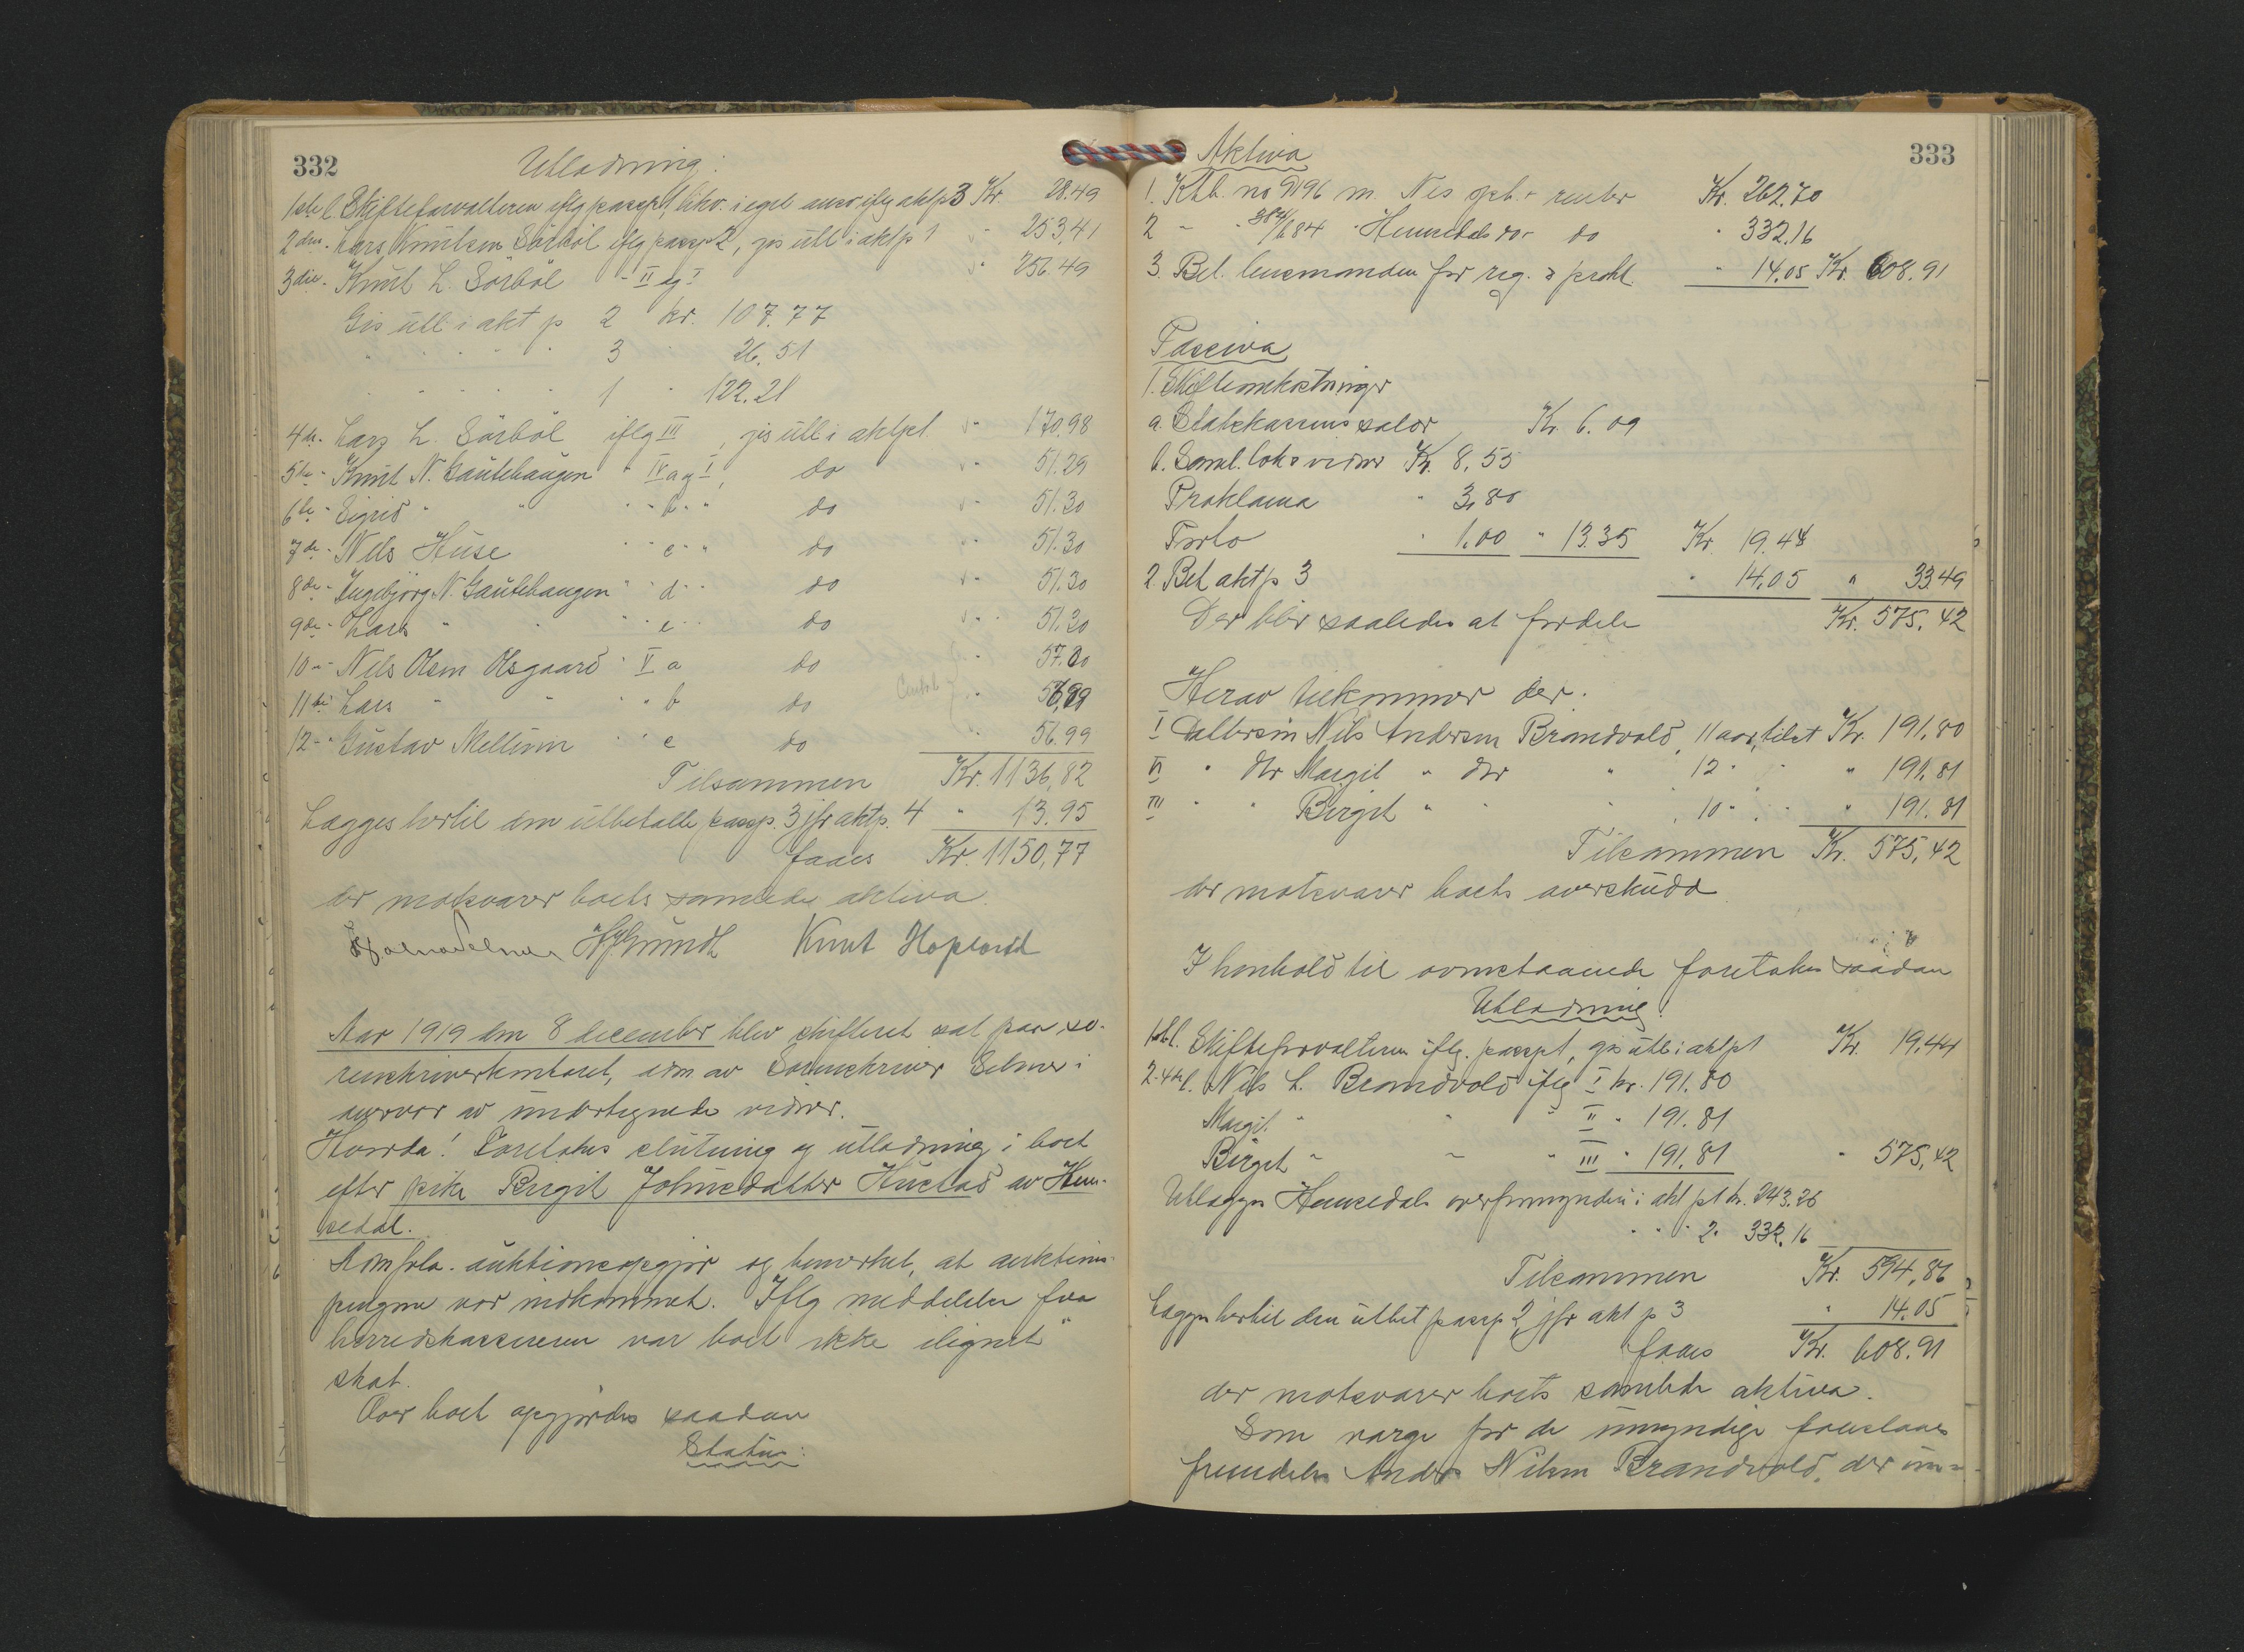 332
Utlodning:
1ste l. Skifteforvalteren iflg passp 1, bihv. i egli anvr iflg aktp 3 Kr. 28.49
2den - Lars Knutsen Sörböl iflg passp 2, gis utl i aktp 1 " 253,41
3die - Knut L. Sörböl - II og I " 256.49
Gis utl i akt p 2 kr. 107.77
" " " " 3 " 26.51
" " " " 1 " 122.21
4de - Lars L. Sörböl iflg III, gis utl i aktp 1 " 170.98
5te - Knut N. Gautehaugen " IV a og I, do " 51.29
6te - Sigrid " " " " b " " do " 51.30
7de - Nils Huse " " c " " do " 51.30
8de - Ingebjörg N. Gautehaugen " " d " " do " 51.30
9de - Lars " " " " e " " do " 51.30
10de - Nils Olsen Olsgaard " V a do " 57.00
11te Lars " " " " b do " 56,99
12- " Gustav Mellum " " c do " 56.99
Tilsammen Kr. 1136,82
Lægges hertil den utbetalte passp. 3 jfr aktp. 4 " 13.95
faaes Kr. 1150,77
der motsvarer boets samlede aktiva.
HjGrundt Knut Hopland
Aar 1919 den 8 december blev skifteret sat paa so-
renskriverkontoret, adm av Sorenskriver Selmer i
nærvær av undertegnede vidner.
Hvorda! Foretokes slutning og utlodning i boet
efter pike Birgit Johnsdatter Huslad av Hem-
sedal.
Adm frla. auktionsopgjør og bemerket, at auktions-
pengene var indkommet. Iflg meddelelse fra
herredskassereren var boet ikke ilignet
skat.
Over boet opgjordes saadan
Status:
333
Aktiva
1. Ktb. no 9196 m. Nes spb. + renter Kr. 262.70
2 - " 384/684 " Hemsedals do - do " 332.16
3. Bet. lensmanden for reg. & prokl. " 14.05 Kr. 608.91
Passiva
1. Skifteomkostninger
a. Statskassens salær Kr. 6.09
b. Saml. lok & vidner Kr. 8.55
Proklama " 3,80
Porto " 1.00 " 13.35 Kr. 19.44
2. Bet aktp 3 " 14.05 " 33.49
Der blir saaledes at fordele Kr. 575,42
Herav tilkommer der:
I Dattersøn Nils Andersen Brandvold, 11 aar, tilst Kr. 191,80
II " dtr Margit " dtr " 12 " " " 191.81
III " " Birgit " " " 10 " " " 191.81
Tilsammen Kr. 575,42
der motsvarer boets overskudd
I henhold til ovenstaaende foretokes saadan
Utlodning:
1ste l. Skifteforvalteren iflg. passp 1, gis utl i aktp 1 Kr. 19.44
2-4de l. Nils L. Brandvold iflg I kr. 191.80
Margit " " " II " 191.81
Birgit " " " III " 191.81 " 575,42
Utlægges Hemsedals overformynderi i akt p 1 kr. 243.26
" " " 2 " 332.16
Tilsammen Kr. 594,86
Lægges hertil den utbet passp 2, jfr akt p 3 " 14.05
faaes Kr. 608.91
der motsvarer boets samlede aktiva.
Som værge for de umyndige foreslaaes
fremdeles Anders Nilsen Brandvold, der un-